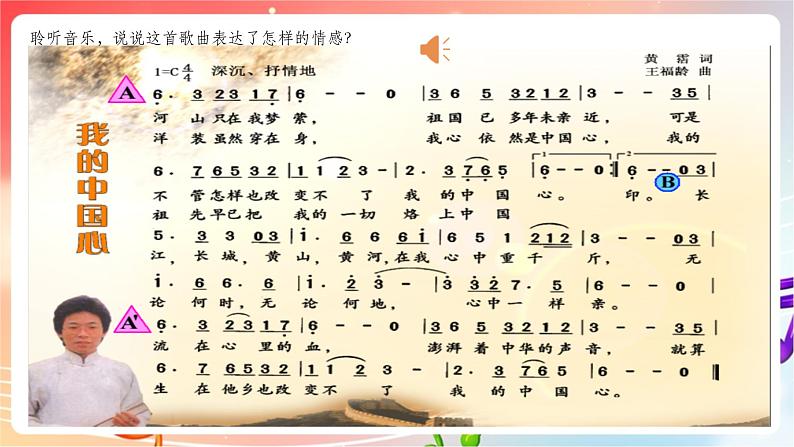 聆听音乐，说说这首歌曲表达了怎样的情感？
1=C 4/4 深沉、抒情地
黄霑 词
王福龄 曲
我的中国心
A
6. 3 2 3 3 1 7 | 6 - - 0 | 3 6 5 3 2 1 2 | 3 - - 3 5 |
河 山只在我梦 萦， 祖国 已 多年未亲 近， 可是
洋 装虽然穿在 身， 我心 依 然是中国 心， 我的
6. 7 6 5 3 2 | 1 1 1 2 3 - | 2. 3 7 6 5 | 6 - - 0 :| 6 - - 0 3 |
不 管怎样也改 变不 了 我 的 中 国 心。 印。 长
祖 先早已把 我的 一切 烙 上中 国
B
5. 3 3 0 3 | i. 6 6 6 i | 6 5 1 2 1 2 | 3 - - 0 3 |
江，长 城，黄 山，黄 河，在我 心 中 重 千 斤， 无
i. 6 6. 6 | i. 2 3 - | 3. 3 3 2 7. 5 | 6 - - 0 |
论 何 时，无 论 何 地， 心 中 一 样 亲。
A'
6. 3 2 3 1 7 | 6 - - 0 | 3 6 5 3 2 1 2 | 3 - - 3 5 |
流 在 心 里的 血， 澎湃 着 中华的声 音， 就算
6. 7 6 5 3 2 | 1 1 1 2 3 - | 2. 3 7 6 5 | 6 - - 0 ||
生 在他乡也改 变不 了 我 的 中 国 心。